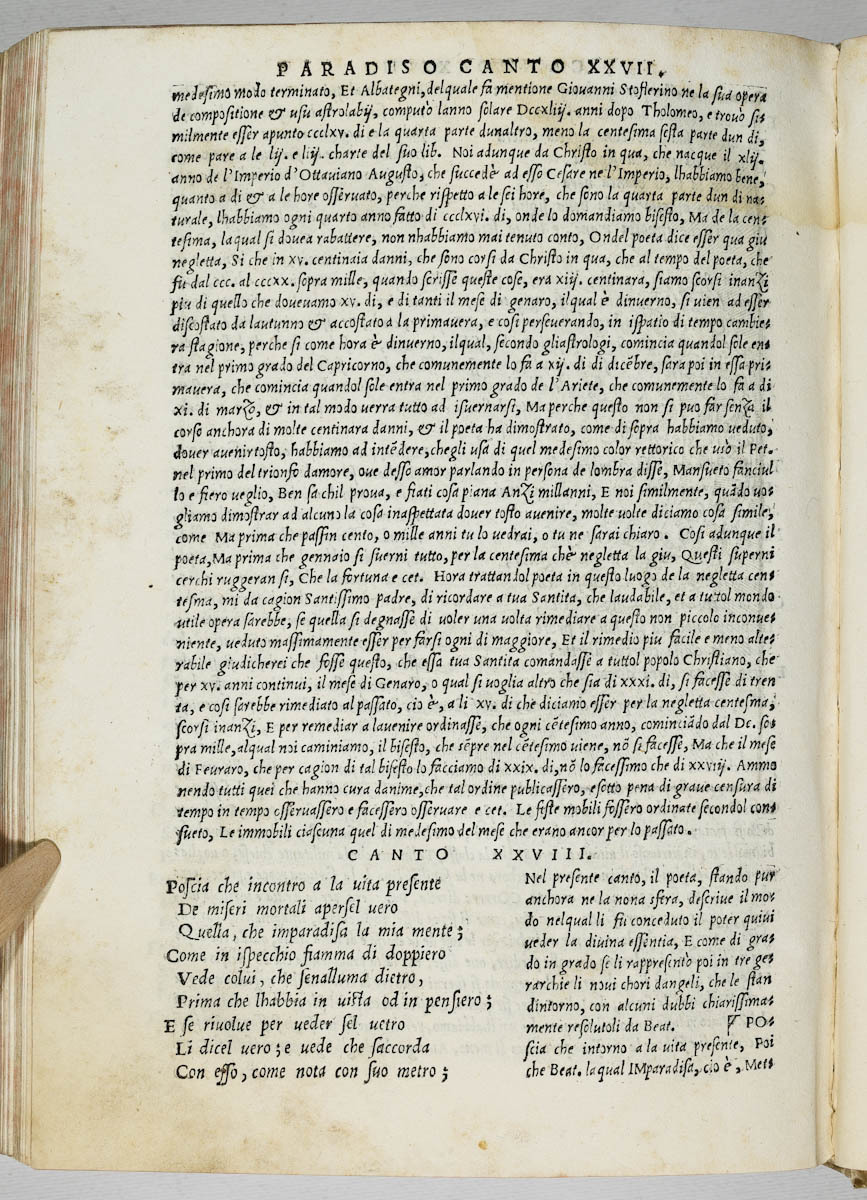 PARADISO CANTO XXVII.
medesimo modo terminato, Et Albategni, delquale fa mentione Giovanni Stoflerino ne la sua opera
de compositione & usu astrolabij, computò lanno solare Dccxliij. anni dopo Tholomeo, e trovò si=
milmente esser apunto ccclxv. di e la quarta parte dunaltro, meno la centesima sesta parte dun di,
come pare a le lij. e liij. charte del suo lib. Noi adunque da Christo in qua, che nacque il xlij.
anno de l'Imperio d'Ottaviano Augusto, che succedè ad esso Cesare ne l'Imperio, lhabbiamo bene,
quanto a di & a le hore osservato, perche rispetto a le sei hore, che sono la quarta parte dun di na=
turale, lhabbiamo ogni quarto anno fatto di ccclxvi. di, onde lo domandiamo bisesto, Ma de la cen=
tesima, laqual si dovea rabattere, non nhabbiamo mai tenuto conto, Ondel poeta dice esser qua giu
negletta, Si che in xv. centinaia danni, che sono corsi da Christo in qua, che al tempo del poeta, che
fu dal ccc. al cccxx. sopra mille, quando scrisse queste cose, era xiij. centinara, siamo scorsi inanzi
piu di quello che dovevamo xv. di, e di tanti il mese di genaro, ilqual è dinverno, si vien ad esser
discostato da lautunno & accostato a la primavera, e cosi perseverando, in ispatio di tempo cambie=
ra stagione, perche si come hora è dinverno, ilqual, secondo gliastrologi, comincia quandol sole en=
tra nel primo grado del Capricorno, che comunemente lo fa a xij. di di dicẽbre, sara poi in essa pri=
mavera, che comincia quandol sole entra nel primo grado de l'Ariete, che comunemente lo fa a di
xi. di marzo, & in tal modo verra tutto ad isvernarsi, Ma perche questo non si puo far senza il
corso anchora di molte centinara danni, & il poeta ha dimostrato, come di sopra habbiamo veduto,
dover avenir tosto, habbiamo ad intẽdere, chegli usa di quel medesimo color rettorico che usò il Pet.
nel primo del trionfo damore, ove desso amor parlando in persona de lombra disse, Mansueto fanciul
lo e fiero veglio, Ben sa chil prova, e fiati cosa piana Anzi millanni, E noi similmente, quãdo vo=
gliamo dimostrar ad alcuno la cosa inaspettata dover tosto avenire, molte volte diciamo cosa simile,
come Ma prima che passin cento, o mille anni tu lo vedrai, o tu ne sarai chiaro. Cosi adunque il
poeta, Ma prima che gennaio si sverni tutto, per la centesima chè negletta la giu, Questi superni
cerchi ruggeran si, Che la fortuna e cet. Hora trattandol poeta in questo luogo de la negletta cen=
tesma, mi da cagion Santissimo padre, di ricordare a tua Santita, che laudabile, et a tuttol mondo
utile opera sarebbe, se quella si degnasse di voler una volta rimediare a questo non piccolo inconve=
niente, veduto massimamente esser per farsi ogni di maggiore, Et il rimedio piu facile e meno alte=
rabile giudicherei che fosse questo, che essa tua Santita comandasse a tuttol popolo Christiano, che
per xv. anni continui, il mese di Genaro, o qual si voglia altro che sia di xxxi. di, si facesse di tren
ta, e cosi sarebbe rimediato al passato, cio è, a li xv. di chè diciamo esser per la negletta centesma,
scorsi inanzi, E per remediar a lavenire ordinasse, che ogni cẽtesimo anno, cominciãdo dal Dc. so=
pra mille, alqual noi caminiamo, il bisesto, che sẽpre nel cẽtesimo viene, nõ si facesse, Ma che il mese
di Fevraro, che per cagion di tal bisesto lo facciamo di xxix. di, nõ lo facessimo che di xxviij. Ammo
nendo tutti quei che hanno cura danime, che tal ordine publicassero, e sotto pena di grave censura di
tempo in tempo osservassero e facessero osservare e cet. Le feste mobili fossero ordinate secondol con=
sueto, Le immobili ciascuna quel di medesimo del mese che erano ancor per lo passato.
CANTO XXVIII.
Poscia che incontro a la vita presente
De miseri mortali apersel vero
Quella, che imparadisa la mia mente;
Come in ispecchio fiamma di doppiero
Vede colui, che senalluma dietro,
Prima che lhabbia in vista od in pensiero;
E se rivolve per veder sel vetro
Li dicel vero; e vede che saccorda
Con esso, come nota con suo metro;
Nel presente canto, il poeta, stando pur
anchora ne la nona sfera, descrive il mo=
do nelqual li fu conceduto il poter quivi
veder la divina essentia, E come di gra=
do in grado se li rappresentò poi in tre ge=
rarchie li novi chori dangeli, che le stan
dintorno, con alcuni dubbi chiarissima=
mente resolutoli da Beat. PO=
scia che intorno a la vita presente, Poi
che Beat. laqual IMparadisa, cio è, Mett=